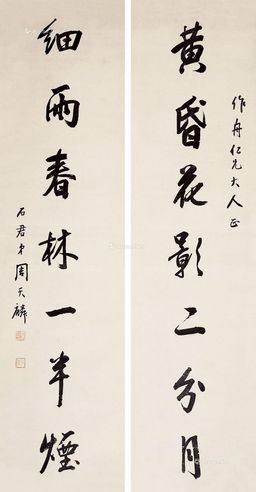 作舟仁兄大人正
黄昏花影二分月
细雨春林一半烟
石君弟周天麟